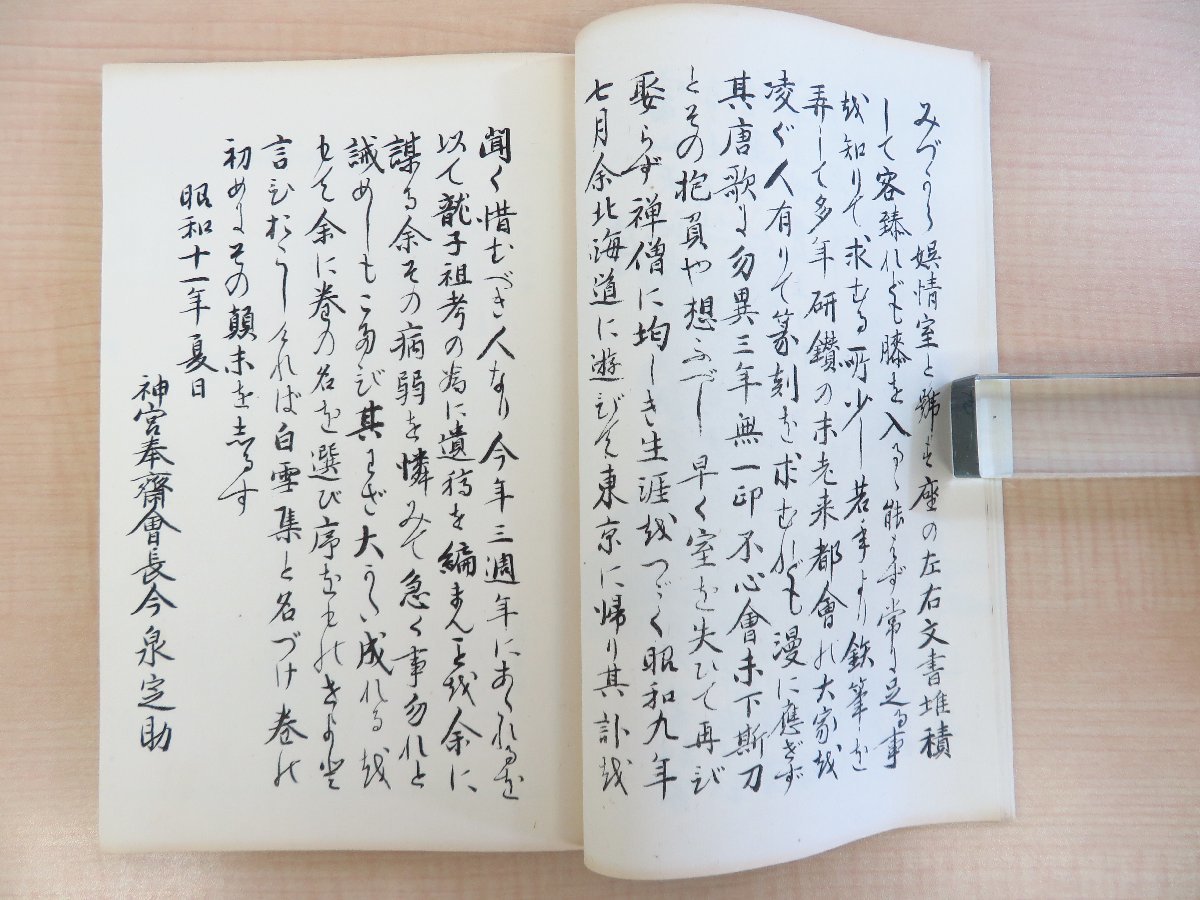 みづから娯情室と號す座の左右文書堆積
して容膝れども膝を入るゝ能はず常に足る事
越知りて求むる所少し若年より鉄筆を
弄して多年研鑽の末老来都會の大家越
凌ぐ人有りて篆刻を求むれども漫に應ぎず
其唐歌に勿異三年無一印不心會未下斯刀
とその抱負や想ふべし早く室を失ひて再び
娶らず禅僧に均しき生涯越つゞく昭和九年
七月余北海道に遊びて東京に帰り其訃越
聞く惜むべき人なり今年三週年にあたれるを
以て龍子祖考の為に遺稿を編まんこと越余に
謀る余その病弱を憐みて急く事勿れと
誡めしもこたび其わざ大かた成れる越
もて余に巻の名を選び序をものせよと
言ひおこしければ白雲集と名づけ巻の
初めにその顛末を志るす
昭和十一年夏日
神宮奉齋會長今泉定助